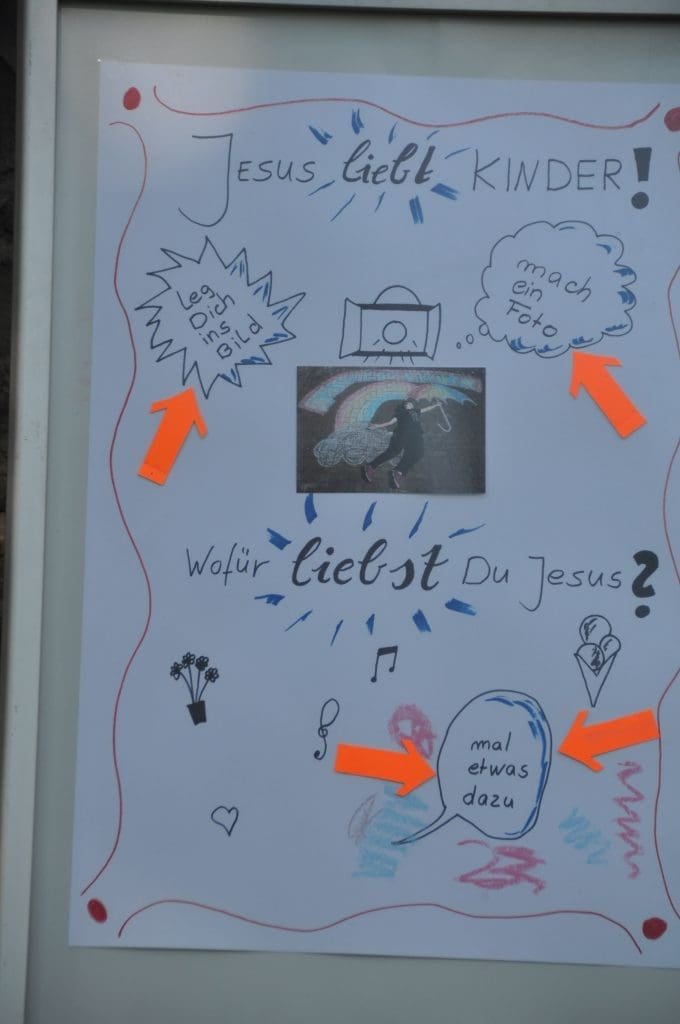 JESUS liebt KINDER!
Leg
Dich
ins
Bild
mach
ein
Foto
Wofür liebst Du Jesus?
mal
etwas
dazu